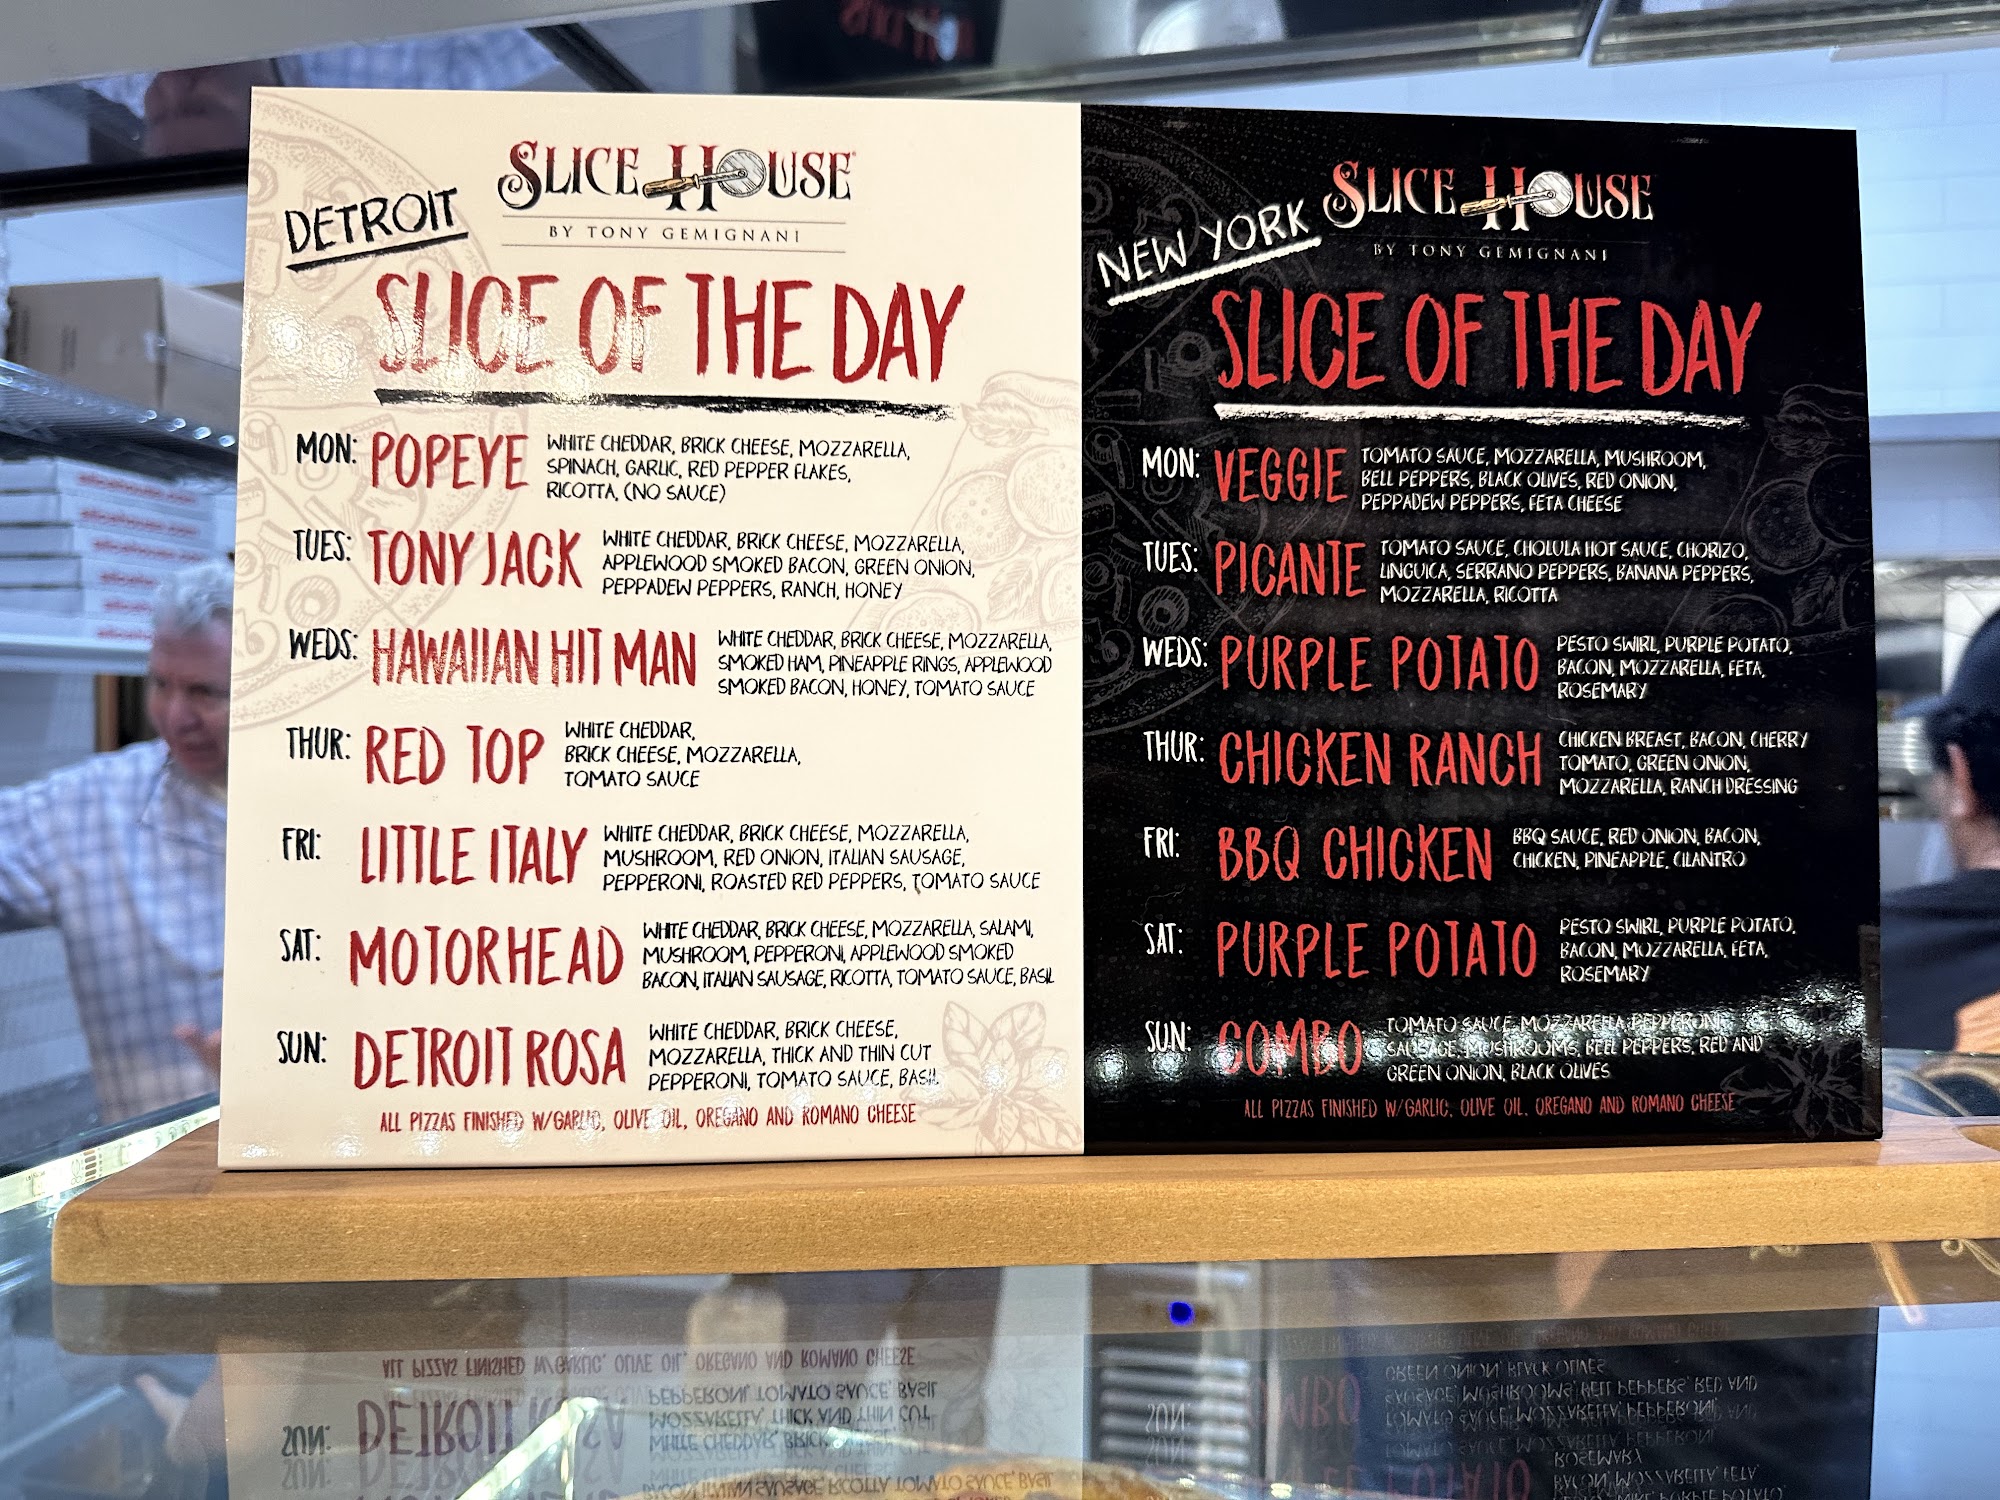 DETROIT
SLICE HOUSE
BY TONY GEMIGNANI
SLICE OF THE DAY
MON: POPEYE
WHITE CHEDDAR, BRICK CHEESE, MOZZARELLA,
SPINACH, GARLIC, RED PEPPER FLAKES,
RICOTTA, (NO SAUCE)
TUES: TONY JACK
WHITE CHEDDAR, BRICK CHEESE, MOZZARELLA,
APPLEWOOD SMOKED BACON, GREEN ONION,
PEPPADEW PEPPERS, RANCH, HONEY
WEDS: HAWAIIAN HIT MAN
WHITE CHEDDAR, BRICK CHEESE, MOZZARELLA,
SMOKED HAM, PINEAPPLE RINGS, APPLEWOOD
SMOKED BACON, HONEY, TOMATO SAUCE
THUR: RED TOP
WHITE CHEDDAR,
BRICK CHEESE, MOZZARELLA,
TOMATO SAUCE
FRI: LITTLE ITALY
WHITE CHEDDAR, BRICK CHEESE, MOZZARELLA,
MUSHROOM, RED ONION, ITALIAN SAUSAGE,
PEPPERONI, ROASTED RED PEPPERS, TOMATO SAUCE
SAT: MOTORHEAD
WHITE CHEDDAR, BRICK CHEESE, MOZZARELLA, SALAMI,
MUSHROOM, PEPPERONI, APPLEWOOD SMOKED
BACON, ITALIAN SAUSAGE, RICOTTA, TOMATO SAUCE, BASIL
SUN: DETROIT ROSA
WHITE CHEDDAR, BRICK CHEESE,
MOZZARELLA, THICK AND THIN CUT
PEPPERONI, TOMATO SAUCE, BASIL
ALL PIZZAS FINISHED W/GARLIC, OLIVE OIL, OREGANO AND ROMANO CHEESE
NEW YORK
SLICE HOUSE
BY TONY GEMIGNANI
SLICE OF THE DAY
MON: VEGGIE
TOMATO SAUCE, MOZZARELLA, MUSHROOM,
BELL PEPPERS, BLACK OLIVES, RED ONION,
PEPPADEW PEPPERS, FETA CHEESE
TUES: PICANTE
TOMATO SAUCE, CHOLULA HOT SAUCE, CHORIZO,
LINGUICA, SERRANO PEPPERS, BANANA PEPPERS,
MOZZARELLA, RICOTTA
WEDS: PURPLE POTATO
PESTO SWIRL, PURPLE POTATO,
BACON, MOZZARELLA, FETA,
ROSEMARY
THUR: CHICKEN RANCH
CHICKEN BREAST, BACON, CHERRY
TOMATO, GREEN ONION,
MOZZARELLA, RANCH DRESSING
FRI: BBQ CHICKEN
BBQ SAUCE, RED ONION, BACON,
CHICKEN, PINEAPPLE, CILANTRO
SAT: PURPLE POTATO
PESTO SWIRL, PURPLE POTATO,
BACON, MOZZARELLA, FETA,
ROSEMARY
SUN: COMBO
TOMATO SAUCE, MOZZARELLA, PEPPERONI,
SAUSAGE, MUSHROOMS, BELL PEPPERS, RED AND
GREEN ONION, BLACK OLIVES
ALL PIZZAS FINISHED W/GARLIC, OLIVE OIL, OREGANO AND ROMANO CHEESE